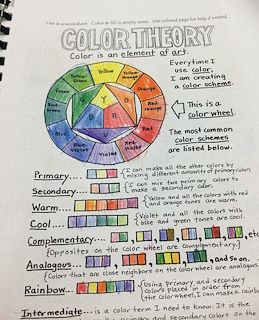 Use as a worksheet. Color & fill in empty areas. Use colored page for help if needed.
COLOR THEORY
Color is an element of art.
Everytime I
use color,
I am creating
a color scheme.
Yellow
Yellow-Green
Yellow-Orange
Green
Orange
Blue-Green
Red-Orange
Blue
Red
Blue-Violet
Red-Violet
Violet
G
Y
O
B
R
V
This is a
color wheel.
The most common
color schemes
are listed below.
Primary....
I can make all the other colors by
mixing different amounts of primary colors
Secondary...
I can mix two primary colors to
make a secondary color.
Warm....
Yellow and all the colors with
red and orange tones are warm.
Cool....
Violet and all the colors with
blue and green tones are cool.
Complementary.... , , , etc.
(Opposites on the color wheel are complementary.)
Analogous... , , , and so on.
(Colors that are close neighbors on the color wheel are analogous.)
Rainbow...
(Using primary and secondary
colors placed in order from
the color wheel, I can make a rainbow
Intermediate.... is a color term I need to know. It is the
primary and secondary colors on the